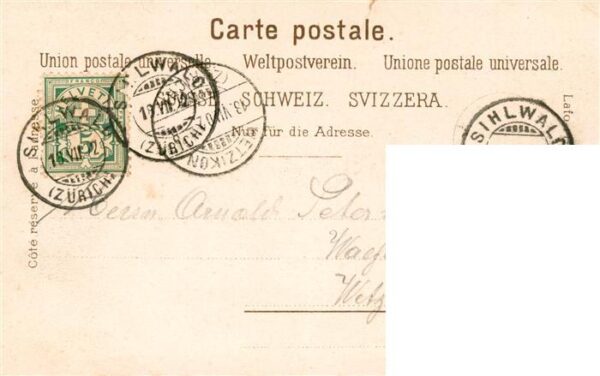 Carte postale.
Union postale universelle. Weltpostverein. Unione postale universale.
SUISSE. SCHWEIZ. SVIZZERA.
Nur für die Adresse.
Côté réservé à l'adresse.
HELVETIA
FRANCO
SIHLWALD
(ZÜRICH)
SIHLWALD
(ZÜRICH)
WETZIKON
SIHLWALD
Herrn Arnold Peter